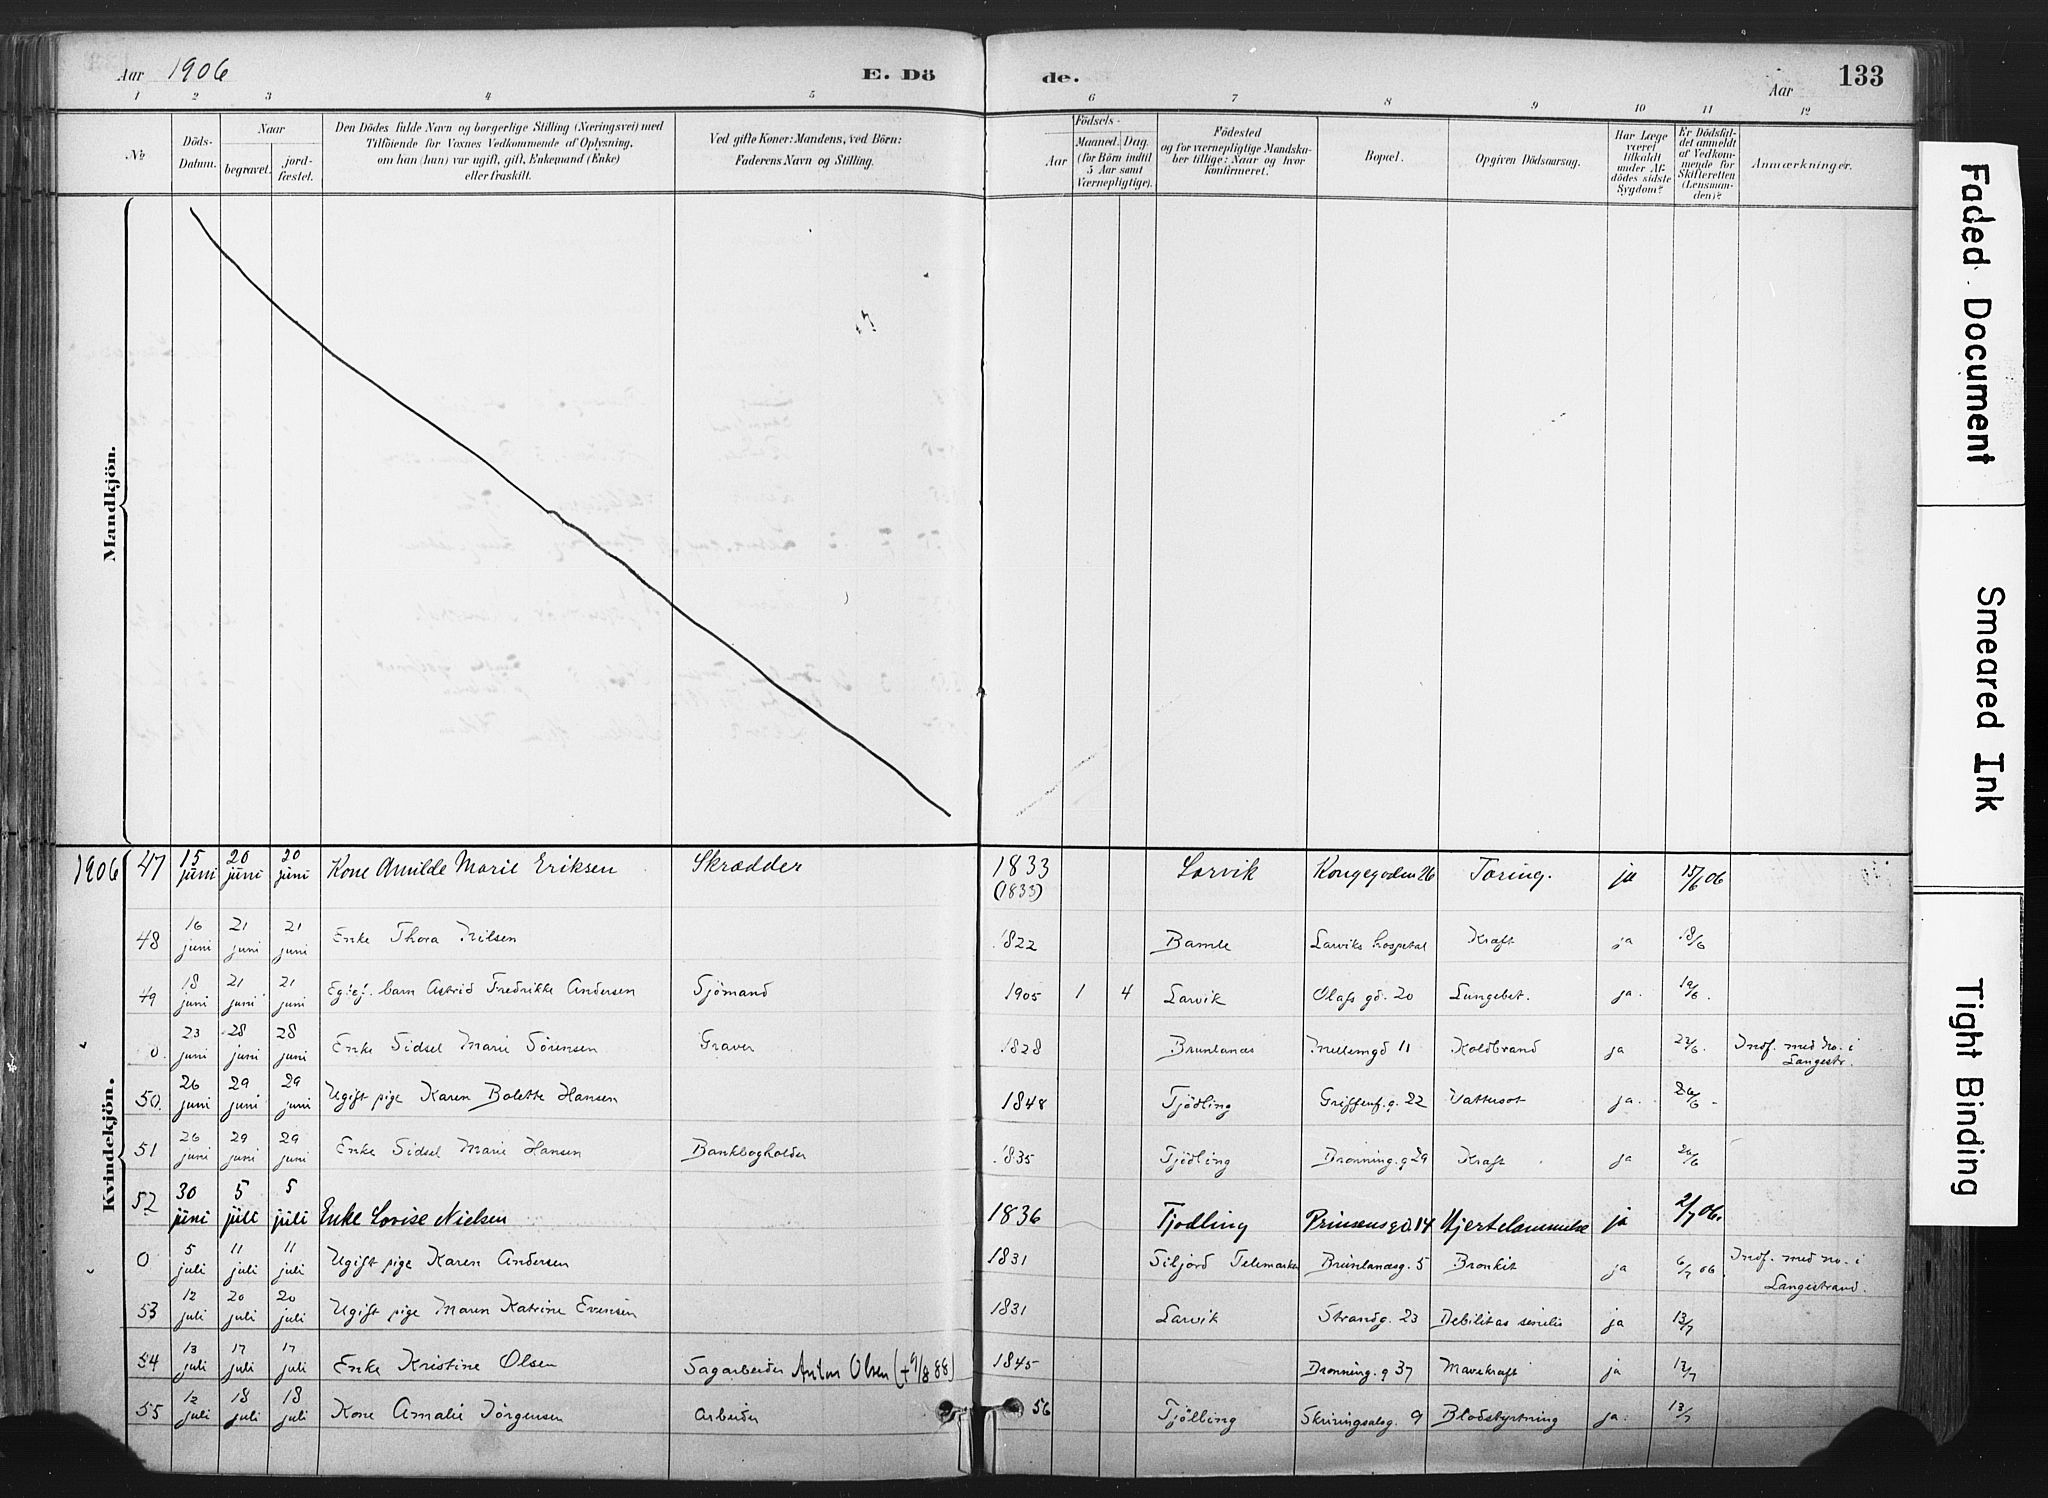 Aar 1906 E. Dö de. Aar 133
1 2 3 4 5 6 7 8 9 10 11 12
No
Döds-Datum.
Naar
begravet.
jord-fæstet.
Den Dödes fulde Navn og borgerlige Stilling (Næringsvei) med
Tilföiende for Voxnes Vedkommende af Oplysning,
om han (hun) var ugift, gift, Enkemand (Enke)
eller fraskilt.
Ved gifte Koner: Mandens, ved Börn:
Faderens Navn og Stilling.
Födsels-
Aar
Maaned.
Dag.
(for Börn indtil
5 Aar samt
Værnepligtige).
Födested
og for værnepligtige Mandska-
ber tillige: Naar og hvor
konfirmeret.
Bopæl.
Opgiven Dödsaarsag.
Har Læge
været
tilkaldt
under Af-
dödes sidste
Sygdom?
Er Dödsfal-
det anmeldt
af Vedkom-
mende for
Skifteretten
(Lensman-
den)?
Anmærkninger.
Mandkjön.
Kvindekjön.
1906 47 15 juni 20 juni 20 juni Kone Amilde Marie Eriksen Skrædder 1833 (1833) Larvik Kongegaden 26 Tæring. ja 15/6 06
48 16 juni 21 juni 21 juni Enke Thora Nilsen 1822 Bamle Larviks hospital Kræft ja 18/6
49 18 juni 21 juni 21 juni Egtef. barn Astrid Fredrikke Andersen Sjömand 1905 1 4 Larvik Olafs gd. 20 Lungebet. ja. 19/6.
0. 23 juni 28 juni 28 juni Enke Sidsel Marie Sörensen Graver 1828 Brunlanæs Mellemgd 11 Koldbrand ja 22/6. Indf. med No. i
Langestr.
50. 26 juni 29 juni 29 juni Ugift pige Karen Bolette Hansen 1848 Tjödling Griffenf.g. 22 Vattersot ja. 26/6 -
51 26 juni 29 juni 29 juni Enke Sidsel Marie Hansen Bankbogholder 1835 Tjödling Dronning.g 29 Kræft ja 26/6
52 30 juni 5 juli 5 juli Enke Lovise Nielsen 1836 Tjodling Prinsensgd 14 Hjertelammelse ja 2/7 06.
0 5 juli 11 juli 11 juli Ugift pige Karen Andersen 1831 Siljord Telemarken Brunlanæsg. 5 Bronkit ja 6/7 06. Indf. med no. i
Langestrand.
53 12 juli 20 juli 20 juli Ugift pige Maren Katrine Evensen 1831 Larvik Strandg. 23 Debilitas senilis ja 13/7
54 13 juli 17 juli 17 juli Enke Kristine Olsen Sagarbeider Anton Olsen (+9/8 88) 1845 Dronning.g 37 Mavekræft ja 13/7
55 12 juli 18 juli 18 juli Kone Amalie Jörgensen Arbeider 56 Tjölling Skiringsalsg. 9 Blodstyrtning ja. 13/7
Faded Document
Smeared Ink
Tight Binding